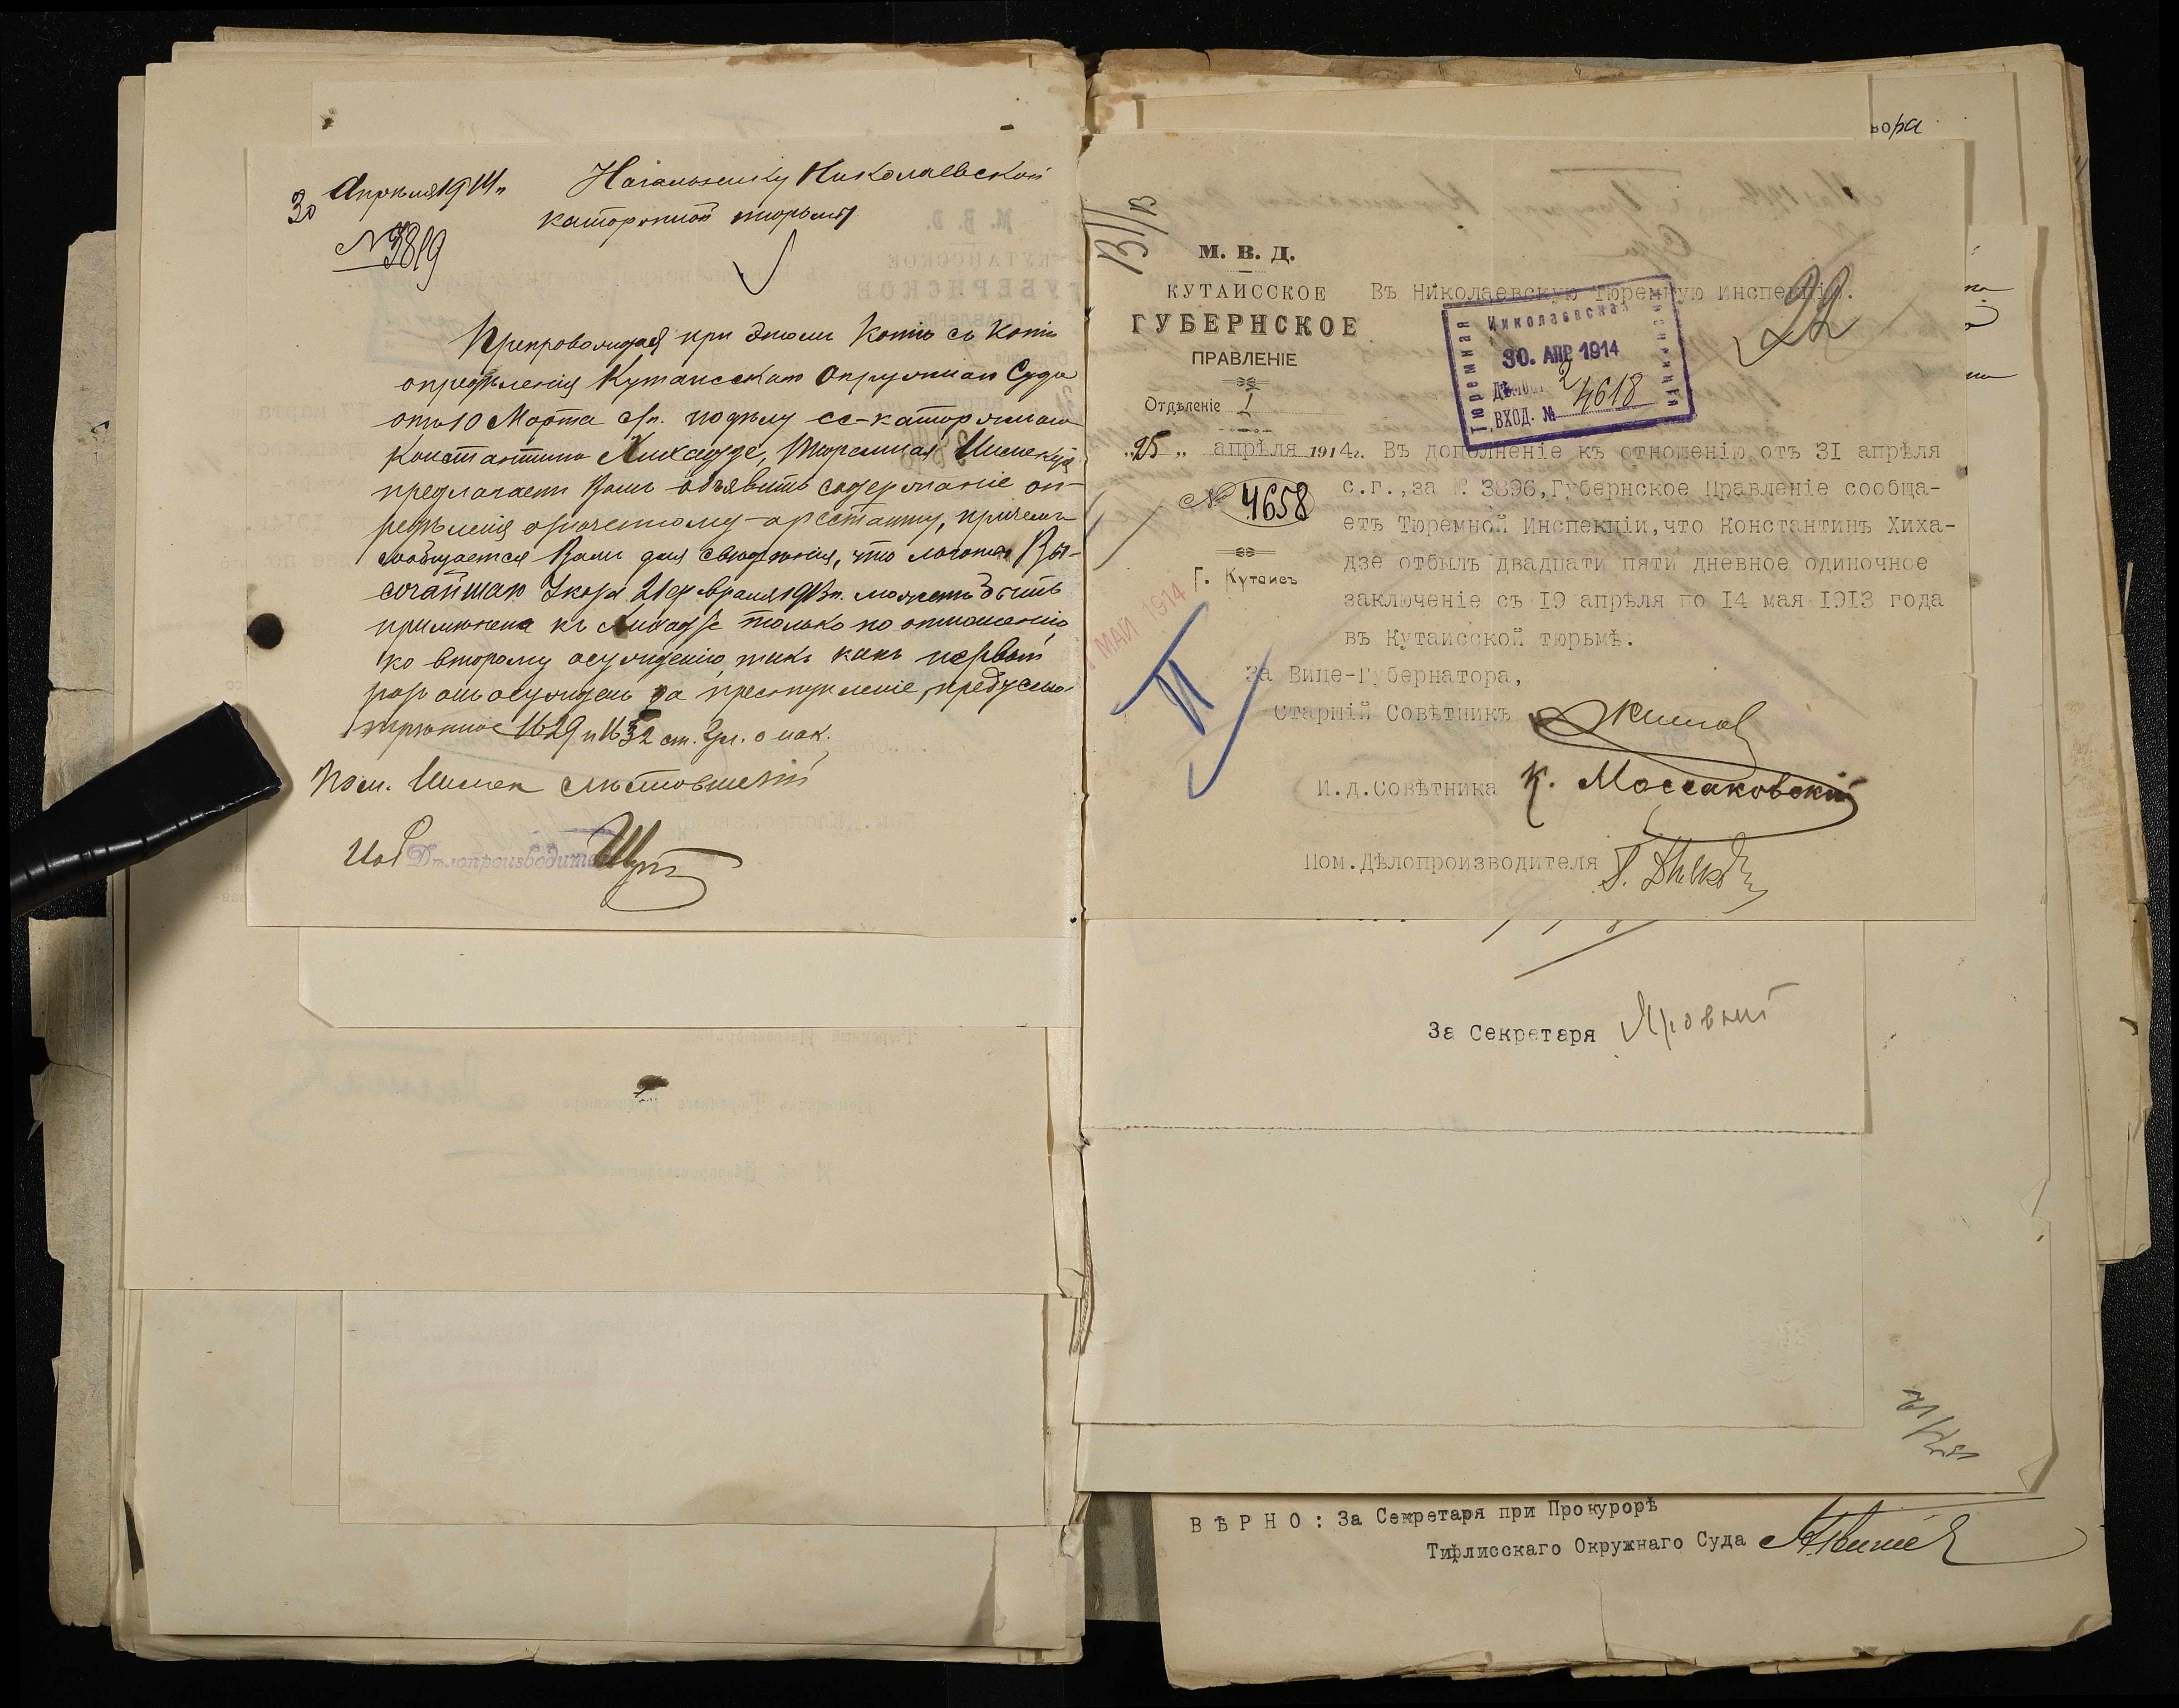 30 Апрѣля 1914 г.
№ 3819
Начальнику Николаевской
каторжной тюрьмы
Препровождая при этомъ копію съ копіи
опредѣленія Кутаисскаго Окружнаго Суда
отъ 10 Марта с/г. по дѣлу сс-каторжнаго
Константина Хихадзе, Тюремная Инспекція
предлагаетъ Вамъ объявить содержаніе оп-
редѣленія означенному арестанту, причемъ
сообщается Вамъ для свѣдѣнія, что милости Вы-
сочайшаго Указа 21 февраля 1913 г. можетъ быть
примѣнена къ Хихадзе только по отношенію
ко второму осужденію, такъ какъ первый
разъ онъ осужденъ за преступленіе, предусмо-
трѣнное 1629 и 1632 ст. Ул. о нак.
Пом. Инспек
Иоб Дѣлопроизводителя
вора
13/V
М. В. Д.
КУТАИССКОЕ
ГУБЕРНСКОЕ
ПРАВЛЕНІЕ
Отдѣленіе I
"25" апрѣля 1914 г.
№ 4658
Г. Кутаисъ
МАЙ 1914
Въ Николаевскую Тюремную Инспекцію.
22
Николаевская
Тюремная
Инспекція
30. АПР 1914
ВХОД. № 4618
Въ дополненіе къ отношенію отъ 31 апрѣля
с.г., за № 3896, Губернское Правленіе сообща-
етъ Тюремной Инспекціи, что Константинъ Хиха-
дзе отбылъ двадцати пяти дневное одиночное
заключеніе съ 19 апрѣля по 14 мая 1913 года
въ Кутаисской тюрьмѣ.
За Вице-Губернатора,
Старшій Совѣтникъ
И.д.Совѣтника К. Моссаковскій
Пом.Дѣлопроизводителя
За Секретаря Яровий
ВѢРНО: За Секретаря при Прокурорѣ
Тифлисскаго Окружнаго Суда